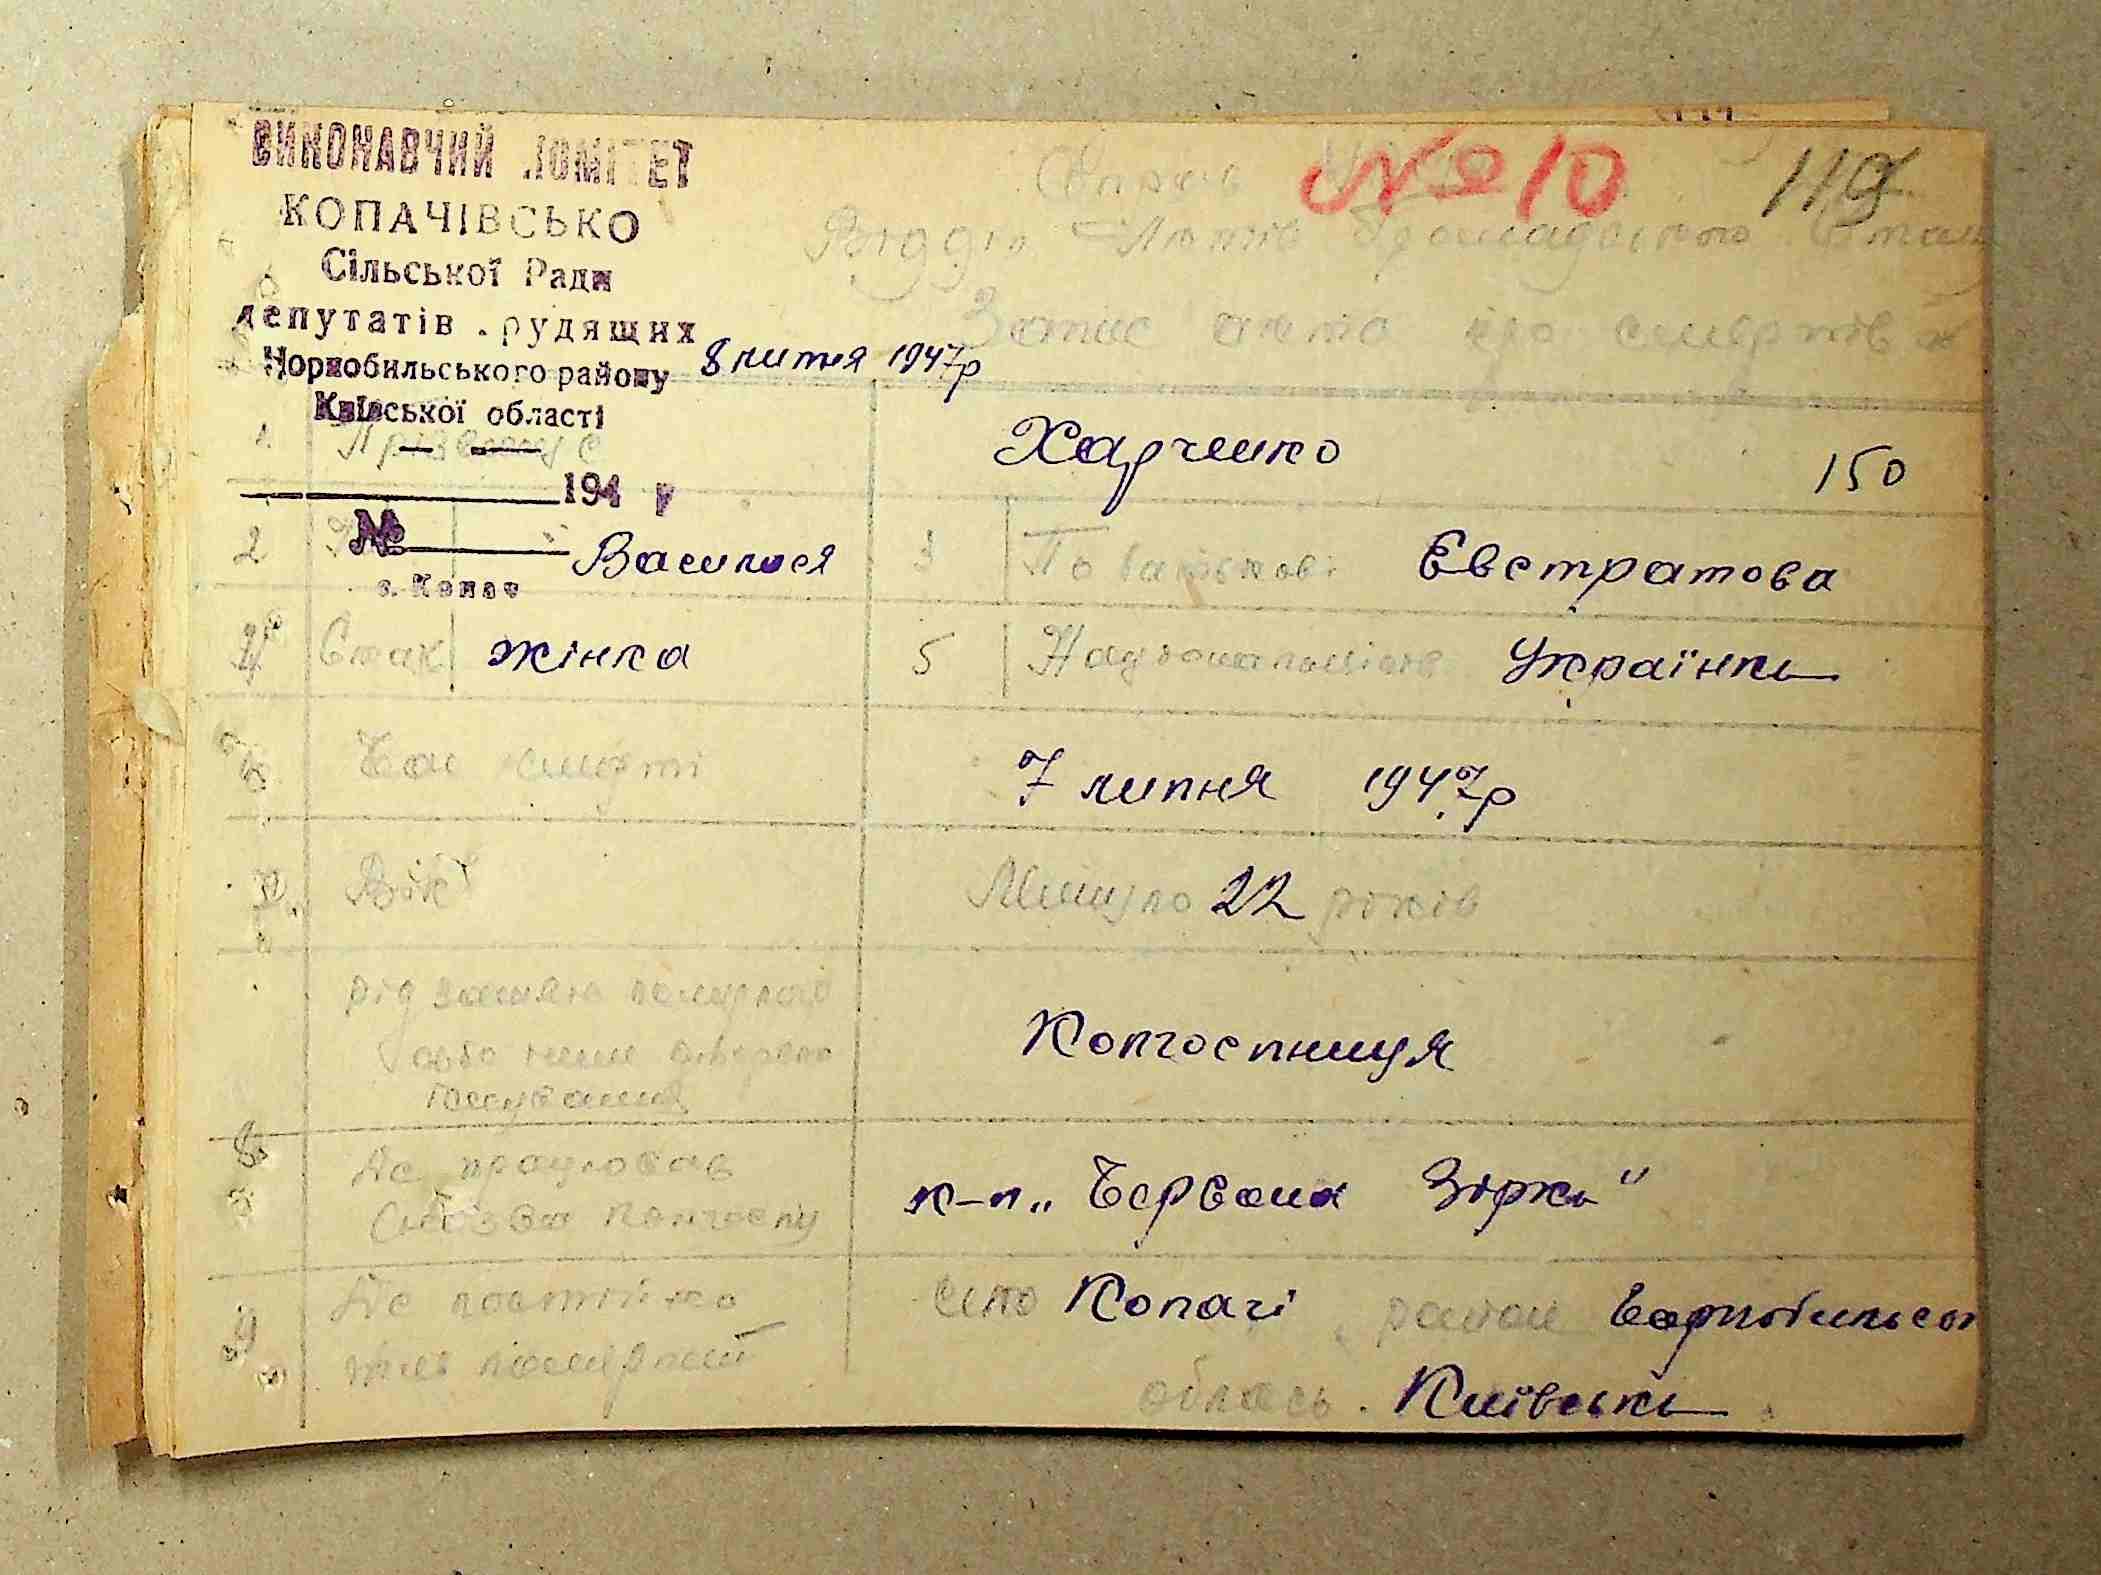 ВИКОНАВЧИЙ КОМІТЕТ
КОПАЧІВСЬКО
Сільської Ради
депутатів рудящих
Чорнобильського району
Київської області
194 р
№
с. Копач
№ 10
119
Відділ Актів Громадського Стану
Запис акта про смерть
8 липня 1947р
1 Прізвище Харченко
150
2 Василися 3 По батькові Євстратова
4 Стать жінка 5 Національність Українка
6 Час смерті 7 липня 1947р
Вік Минуло 22 років
рід занять померлого
або інше джерело
існування
Колгоспниця
8 Де працював
Назва колгоспу
к-п „Червона Зірка"
9 Де постійно
жив померлий
село Копачі, район Чорнобильськ
область Київська